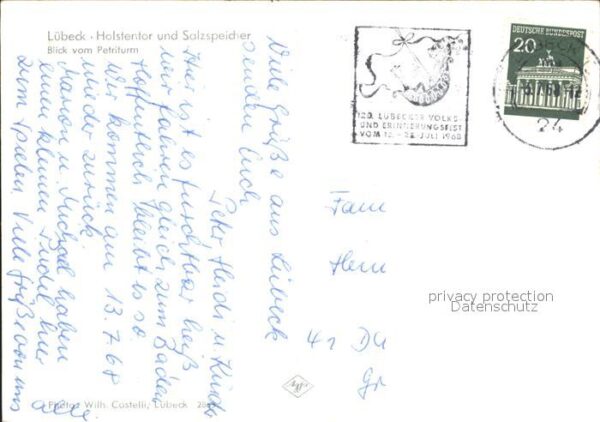 Lübeck · Holstentor und Salzspeicher
Blick vom Petriturm
Viele Grüße aus Lübeck
senden Euch
Peter Heidi u. Kinder
Hier ist es furchtbar heiß
wir fahren gleich zum Baden
Hoffentlich bleibt es so.
Wir kommen am 13.7.68
wieder zurück
Marion u. Michael haben
einen kleinen Pudel hier
zum spielen. Viele Grüße von uns
allen
Photo: Wilh. Castelli, Lübeck
120. LÜBECKER VOLKS-
UND ERINNERUNGSFEST
VOM JULI 1968
DEUTSCHE BUNDESPOST
20
24
Fam
Hem
41 Du
privacy protection
Datenschutz